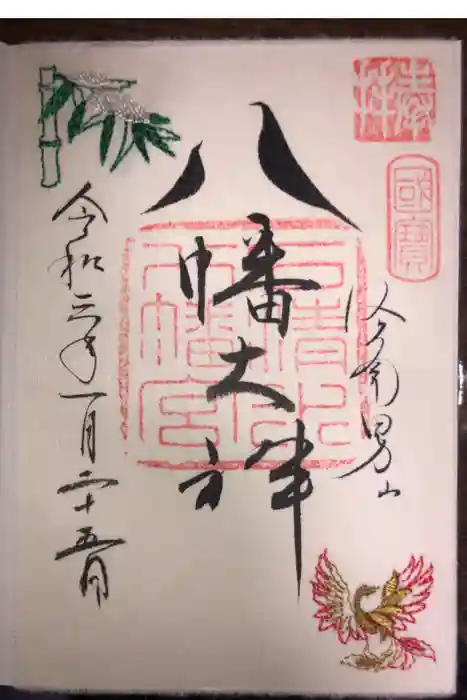 奉拝
國寶
男山
八幡大神
石清水
八幡宮
令和三年一月二十五日